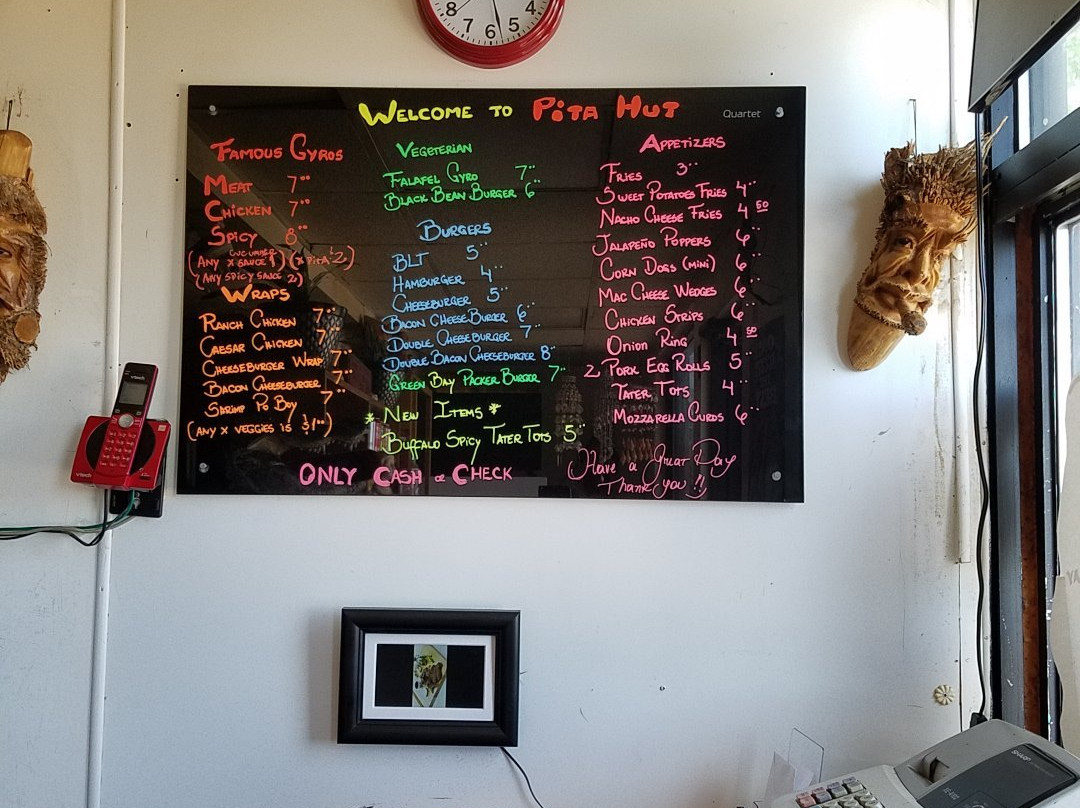 8 7 6 5 4
WELCOME TO PITA HUT
Quartet
FAMOUS GYROS
MEAT 7··
CHICKEN 7··
SPICY 8··
(ANY x CUCUMBER SAUCE 1) (x PITA 2)
(ANY SPICY SAUCE 2)
WRAPS
RANCH CHICKEN 7··
CAESAR CHICKEN 7··
CHEESEBURGER WRAP 7··
BACON CHEESEBURGER 7··
SHRIMP PO BOY 7··
(ANY x VEGGIES IS $1··)
VEGETERIAN
FALAFEL GYRO 7··
BLACK BEAN BURGER 6··
BURGERS
BLT 5··
HAMBURGER 4··
CHEESEBURGER 5··
BACON CHEESEBURGER 6··
DOUBLE CHEESEBURGER 7··
DOUBLE BACON CHEESEBURGER 8··
GREEN BAY PACKER BURGER 7··
* NEW ITEMS *
BUFFALO SPICY TATER TOTS 5··
APPETIZERS
FRIES 3··
SWEET POTATOES FRIES 4··
NACHO CHEESE FRIES 4 50
JALAPEÑO POPPERS 6··
CORN DOGS (MINI) 6··
MAC CHEESE WEDGES 6··
CHICKEN STRIPS 6··
ONION RING 4 50
2 PORK EGG ROLLS 5··
TATER TOTS 4··
MOZZARELLA CURDS 6··
ONLY CASH or CHECK
Have a Great Day
Thank you !!
vtech
vtech
SHARP